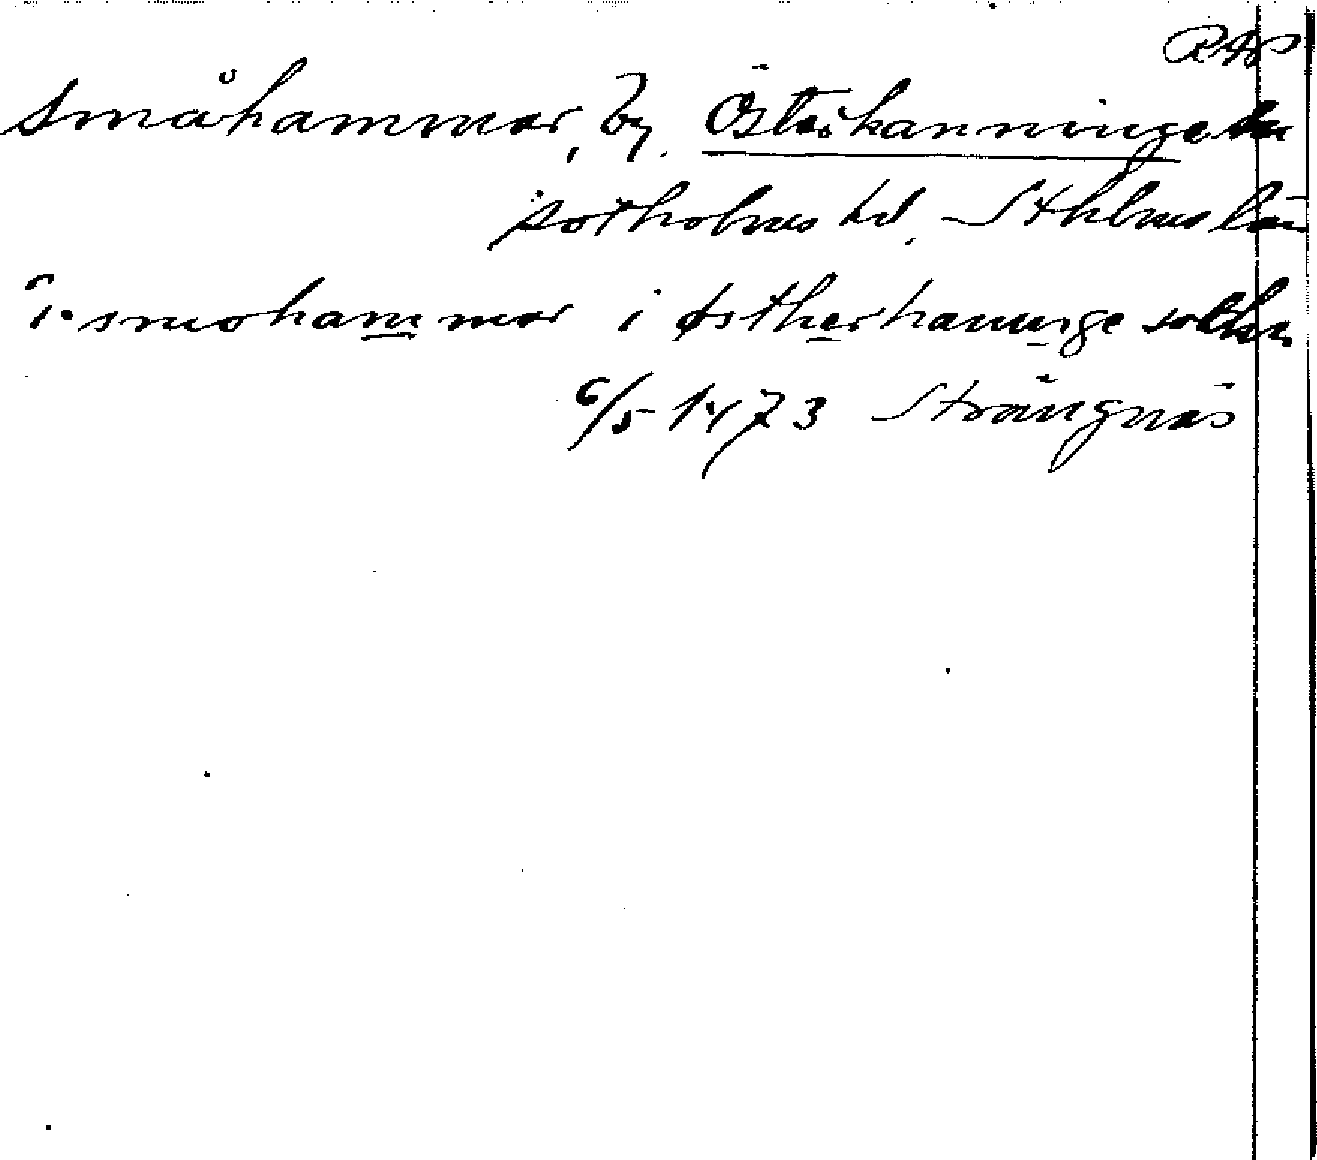 RAp
Småhammar, by, Österhanninge sn
Sotholms hd, Sthlms län
i smohammar i østherhaninge sokn
6/5 1473 Strängnäs